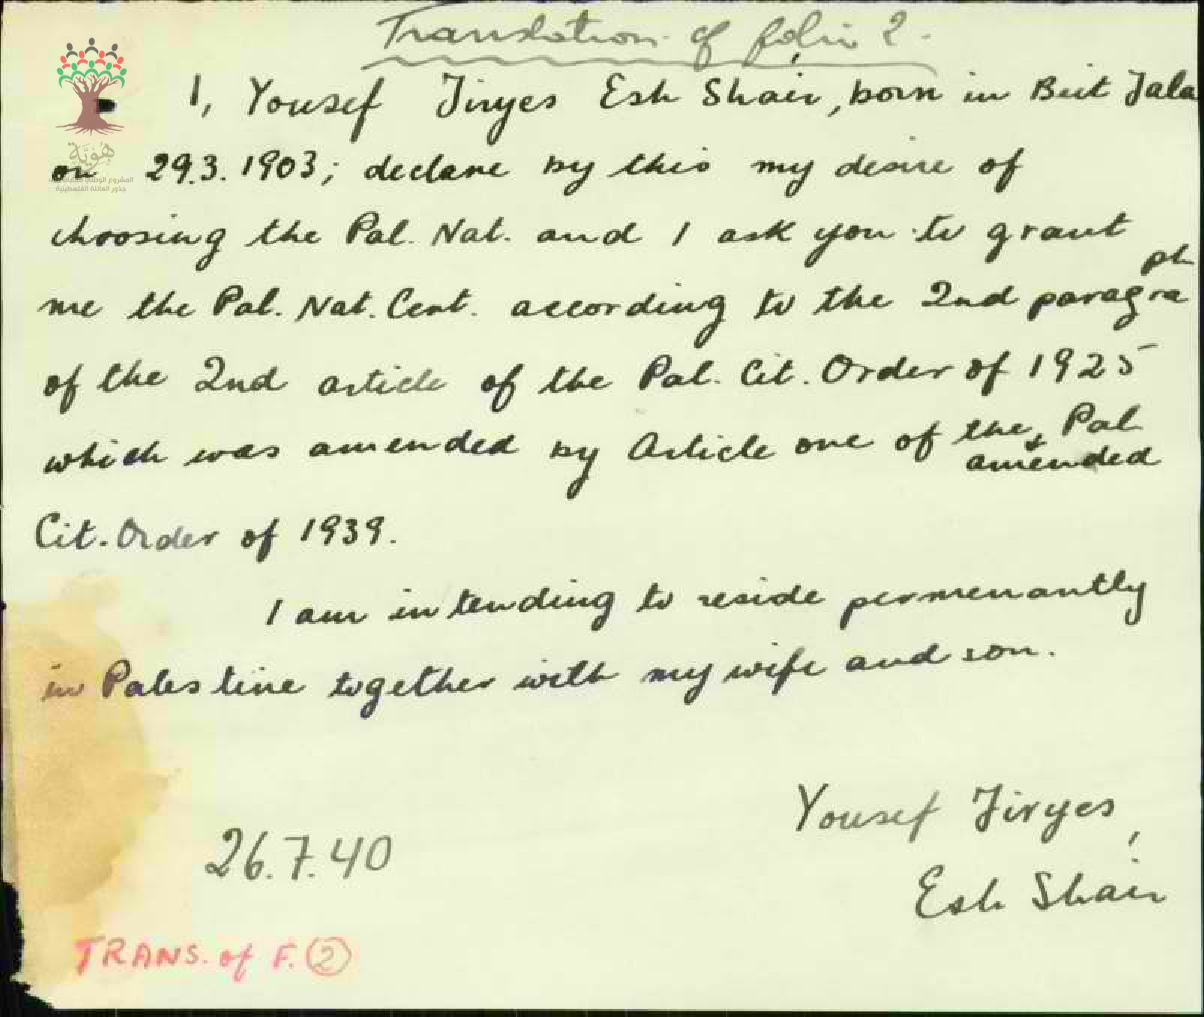 Translation of folio 2.
I, Yousef Jiryes Esh Shair, born in Beit Jala
on 29.3.1903; declare by this my desire of
choosing the Pal. Nat. and I ask you to grant
me the Pal. Nat. Cert. according to the 2nd paragraph
of the 2nd article of the Pal. Cit. Order of 1925
which was amended by Article one of the Pal
amended
Cit. Order of 1939.
I am intending to reside permenantly
in Palestine together with my wife and son.
Yousef Jiryes,
26.7.40
Esh Shair
TRANS. of F. 2
هوية
جذور العائلة الفلسطينية